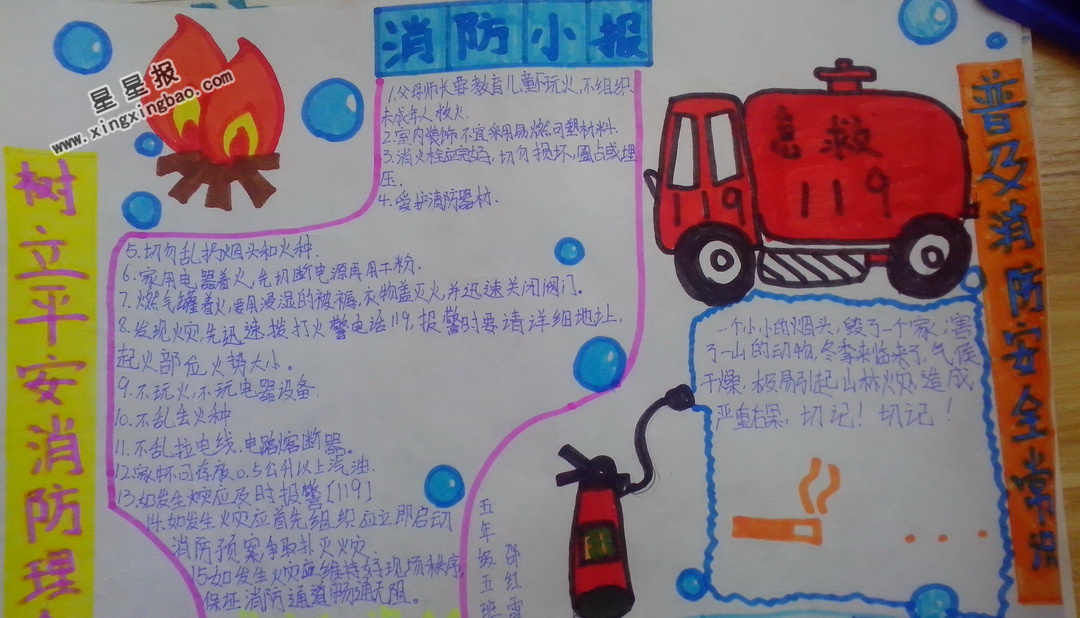 消防小报
星星报
www.xingxingbao.com
树立平安消防理
1.父母师长要教育儿童不玩火,不组织
未成年人救火.
2.室内装饰不宜采用易燃可塑材料.
3.消火栓应完好,切勿损坏,圈占或埋
压.
4.爱护消防器材.
5.切勿乱扔烟头和火种.
6.家用电器着火,先切断电源再用干粉.
7.燃气罐着火,要用浸湿的被褥、衣物盖灭火并迅速关闭阀门。
8.发现火灾先迅速拨打火警电话119,报警时要请详细地址,
起火部位火势大小。
9.不玩火,不玩电器设备.
10.不乱丢火种
11.不乱拉电线、电路熔断器。
12.家怀可存放0.5公升以上汽油.
13.如发生灾应及时报警〔119〕
14.如发生火灾应首先组织应立即启动
消防预案争取扑灭火灾
15.如发生火灾应维持好现场秩序,
保证消防通道畅通无阻。
急救
119
119
普及消防安全常识
一个小小的烟头,毁了一个家;害
了一山的动物,冬季来临来了,气候
干燥,极易引起山林火灾,造成
严重后果,切记!切记!
五年级五班
邵红雷